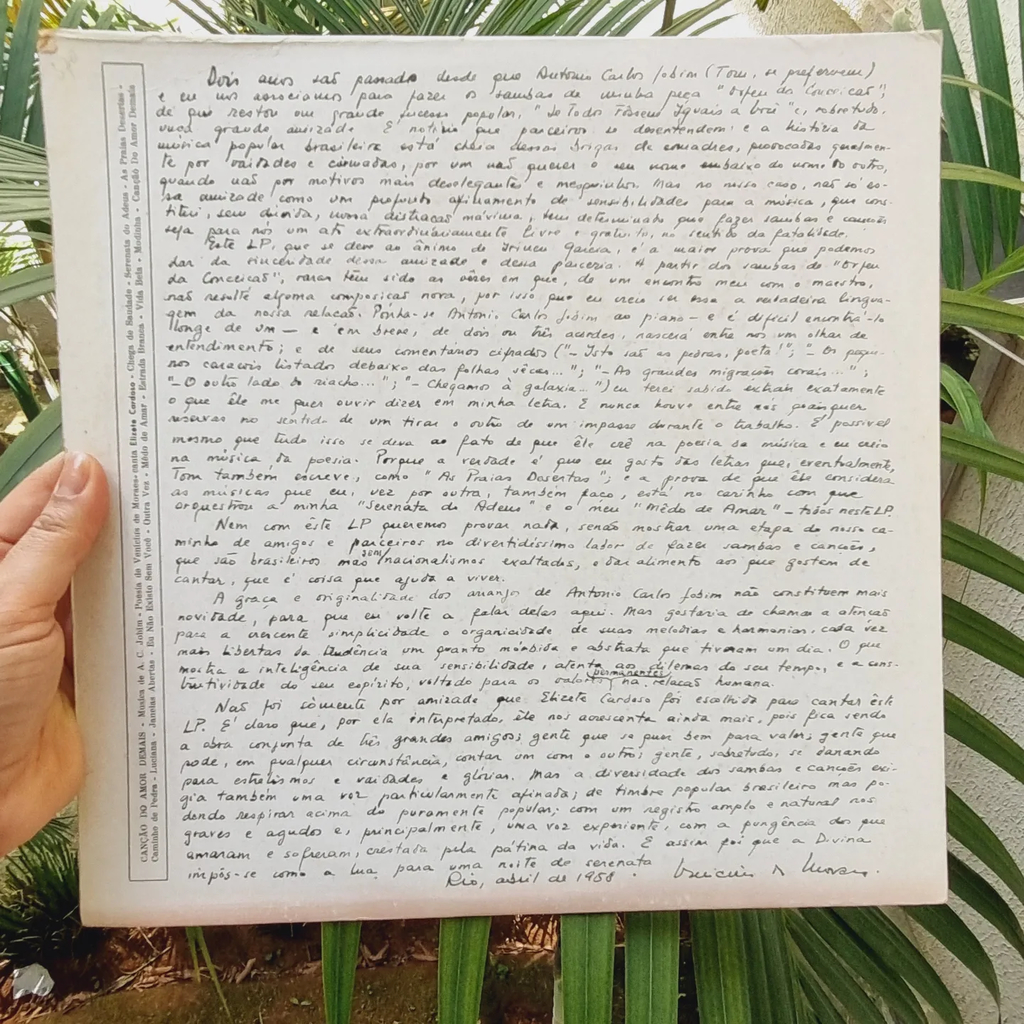 CANÇÃO DO AMOR DEMAIS - Musica de A. C. Jobim - Poesia de Venicius de Moraes - canta Elizete Cardoso - Chega de Saudade - Serenata do Adeus - As Praias Desertas -
Caminho de Pedra - Luciana - Janelas Abertas - Eu Não Existo Sem Você - Outra Vez - Mêdo de Amar - Estrada Branca - Vida Bela - Modinha - Canção Do Amor Demais
Dois anos são passados desde que Antonio Carlos Jobim (Tom, se preferirem)
e eu nos associamos para fazer os sambas de minha peça "Orfeu da Conceição",
de que restou um grande sucesso popular, "Se Todos Fôssem Iguais a Você" e, sobretudo,
uma grande amizade. É notório que parceiros se desentendem: e a história da
música popular brasileira está cheia dessas brigas de comadres, provocadas geralmen-
te por vaidades e ciumadas, por um não querer o seu nome embaixo do nome do outro,
quando não por motivos mais deselegantes e mesquinhos. Mas no nosso caso, não só es-
sa amizade como um profundo afilhamento de sensibilidades para a música, que cons-
titui, sem dúvida, nossa distração máxima, tem determinado que fazer sambas e canções
seja para nós um ato extraordinàriamente livre e gratuito, no sentido da fatalidade.
Êste LP, que se deve ao ânimo de Irineu Garcia, é a maior prova que podemos
dar da sinceridade dessa amizade e dessa parceria. A partir dos sambas de "Orfeu
da Conceição", raras têm sido as vêzes em que, de um encontro meu com o maestro,
não resulte alguma composição nova, por isso que eu creio ser essa a verdadeira lingua-
gem da nossa relação. Ponha-se Antonio Carlos Jobim ao piano — e é difícil encontrá-lo
longe de um — e em breve, de dois ou três acordes, nascerá entre nós um olhar de
entendimento; e de seus comentários cifrados ("— Isto são as pedras, poeta!"; "— Os peque-
nos caracóis listados debaixo das folhas sêcas..."; "— As grandes migrações corais...";
"— O outro lado do riacho..."; "— Chegamos à galaxia...") eu terei sabido extrair exatamente
o que êle me quer ouvir dizer em minha letra. E nunca houve entre nós quaisquer
reservas no sentido de um tirar o outro de um impasse durante o trabalho. É possível
mesmo que tudo isso se deva ao fato de que êle crê na poesia da música e eu creio
na música da poesia. Porque a verdade é que eu gosto das letras que, eventualmente,
Tom também escreve, como "As Praias Desertas"; e a prova de que êle considera
as músicas que eu, vez por outra, também faço, está no carinho com que
orquestrou a minha "Serenata do Adeus" e o meu "Mêdo de Amar" — todos neste LP.
Nem com êste LP queremos provar nada, senão mostrar uma etapa do nosso ca-
minho de amigos e parceiros no divertidíssimo labor de fazer sambas e canções,
que são brasileiros mas sem nacionalismos exaltados, e dar alimento aos que gostam de
cantar, que é coisa que ajuda a viver.
A graça e originalidade dos arranjos de Antonio Carlos Jobim não constituem mais
novidade, para que eu volte a falar delas aqui. Mas gostaria de chamar a atenção
para a crescente simplicidade e organicidade de suas melodias e harmonias, cada vez
mais libertas da tendência um quanto mórbida e abstrata que tiveram um dia. O que
mostra a inteligência de sua sensibilidade, atenta aos dilemas do seu tempo, e a cons-
trutividade do seu espírito, voltado para os valores permanentes na relação humana.
Não foi sòmente por amizade que Elizete Cardoso foi escolhida para cantar êste
LP. É claro que, por ela interpretado, êle nos acrescenta ainda mais, pois fica sendo
a obra conjunta de três grandes amigos; gente que se quer bem para valer; gente que
pode, em qualquer circunstância, contar um com o outro; gente, sobretudo, se danando
para estrelismos e vaidades e glórias. Mas a diversidade dos sambas e canções exi-
gia também uma voz particularmente afinada; de timbre popular brasileiro mas po-
dendo respirar acima do puramente popular; com um registro amplo e natural nos
graves e agudos e, principalmente, uma voz experiente, com a pungência dos que
amaram e sofreram, crestada pela pátina da vida. E assim foi que a Divina
impôs-se como a lua para uma noite de serenata
Rio, abril de 1958. Vinicius de Moraes.